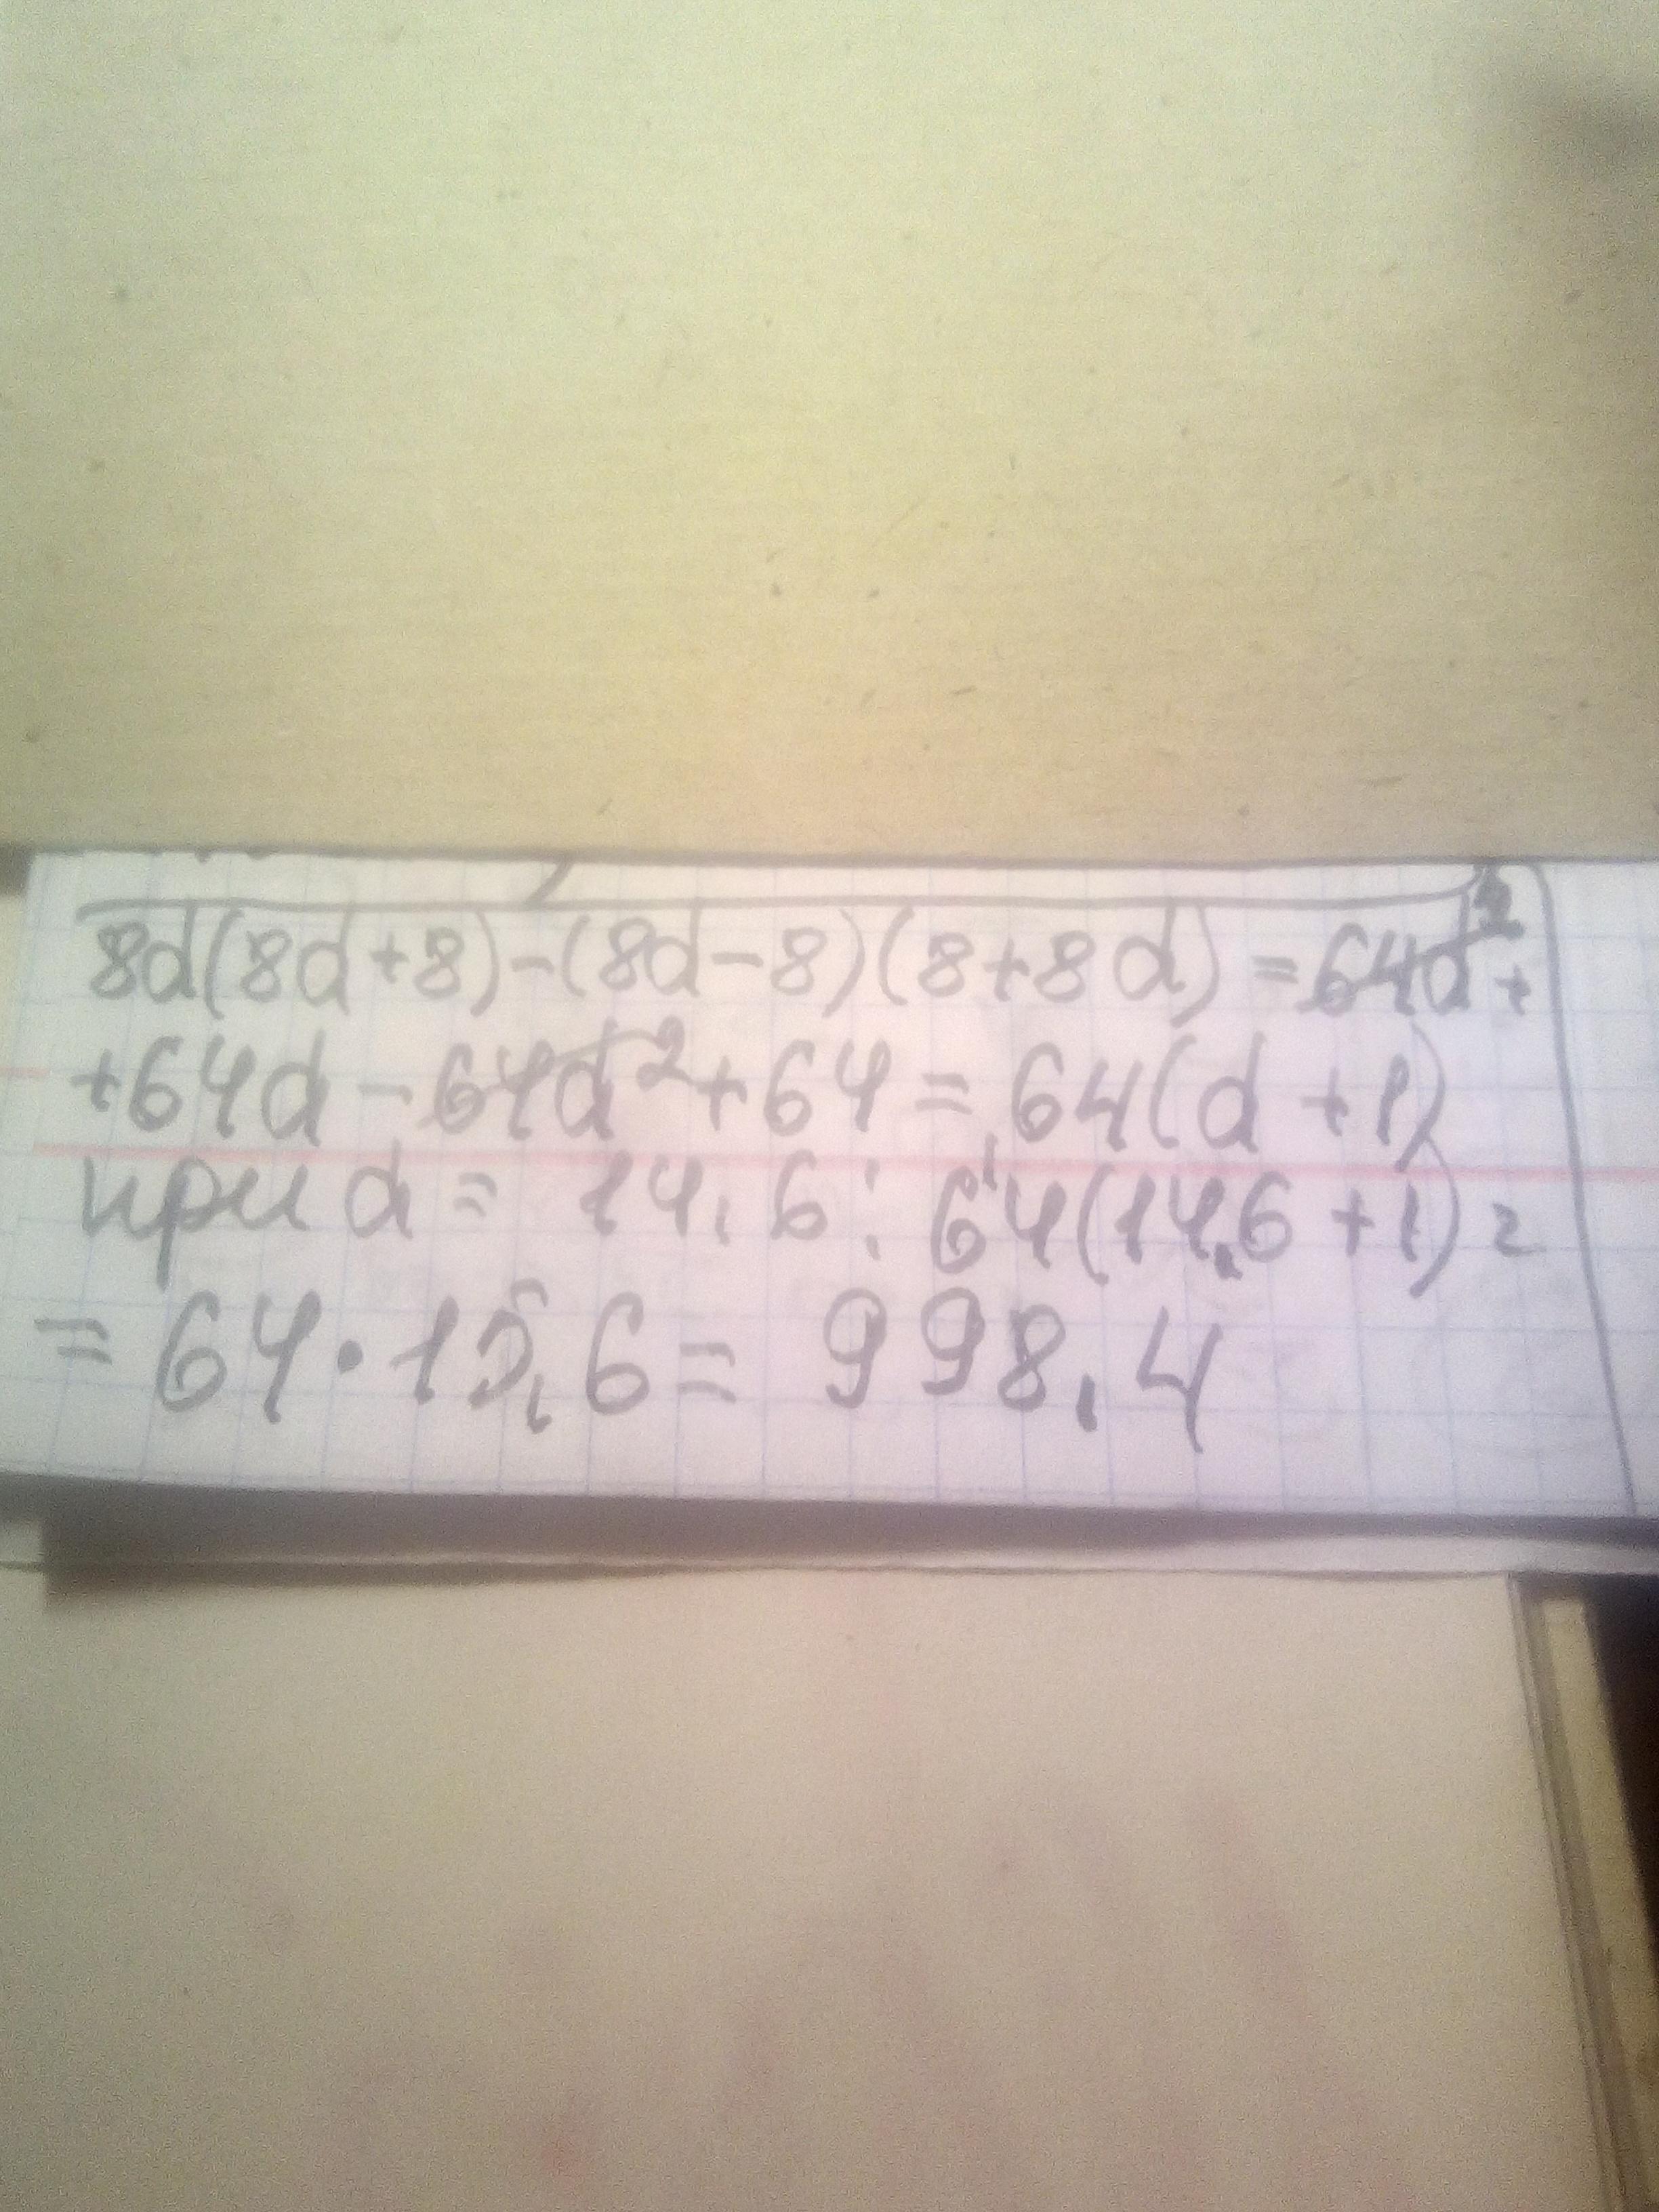 8d(8d+8)-(8d-8)(8+8d)=64d²+
+64d-64d²+64=64(d+1)
при d= 14,6: 64(14,6+1)=
=64·15,6=998,4